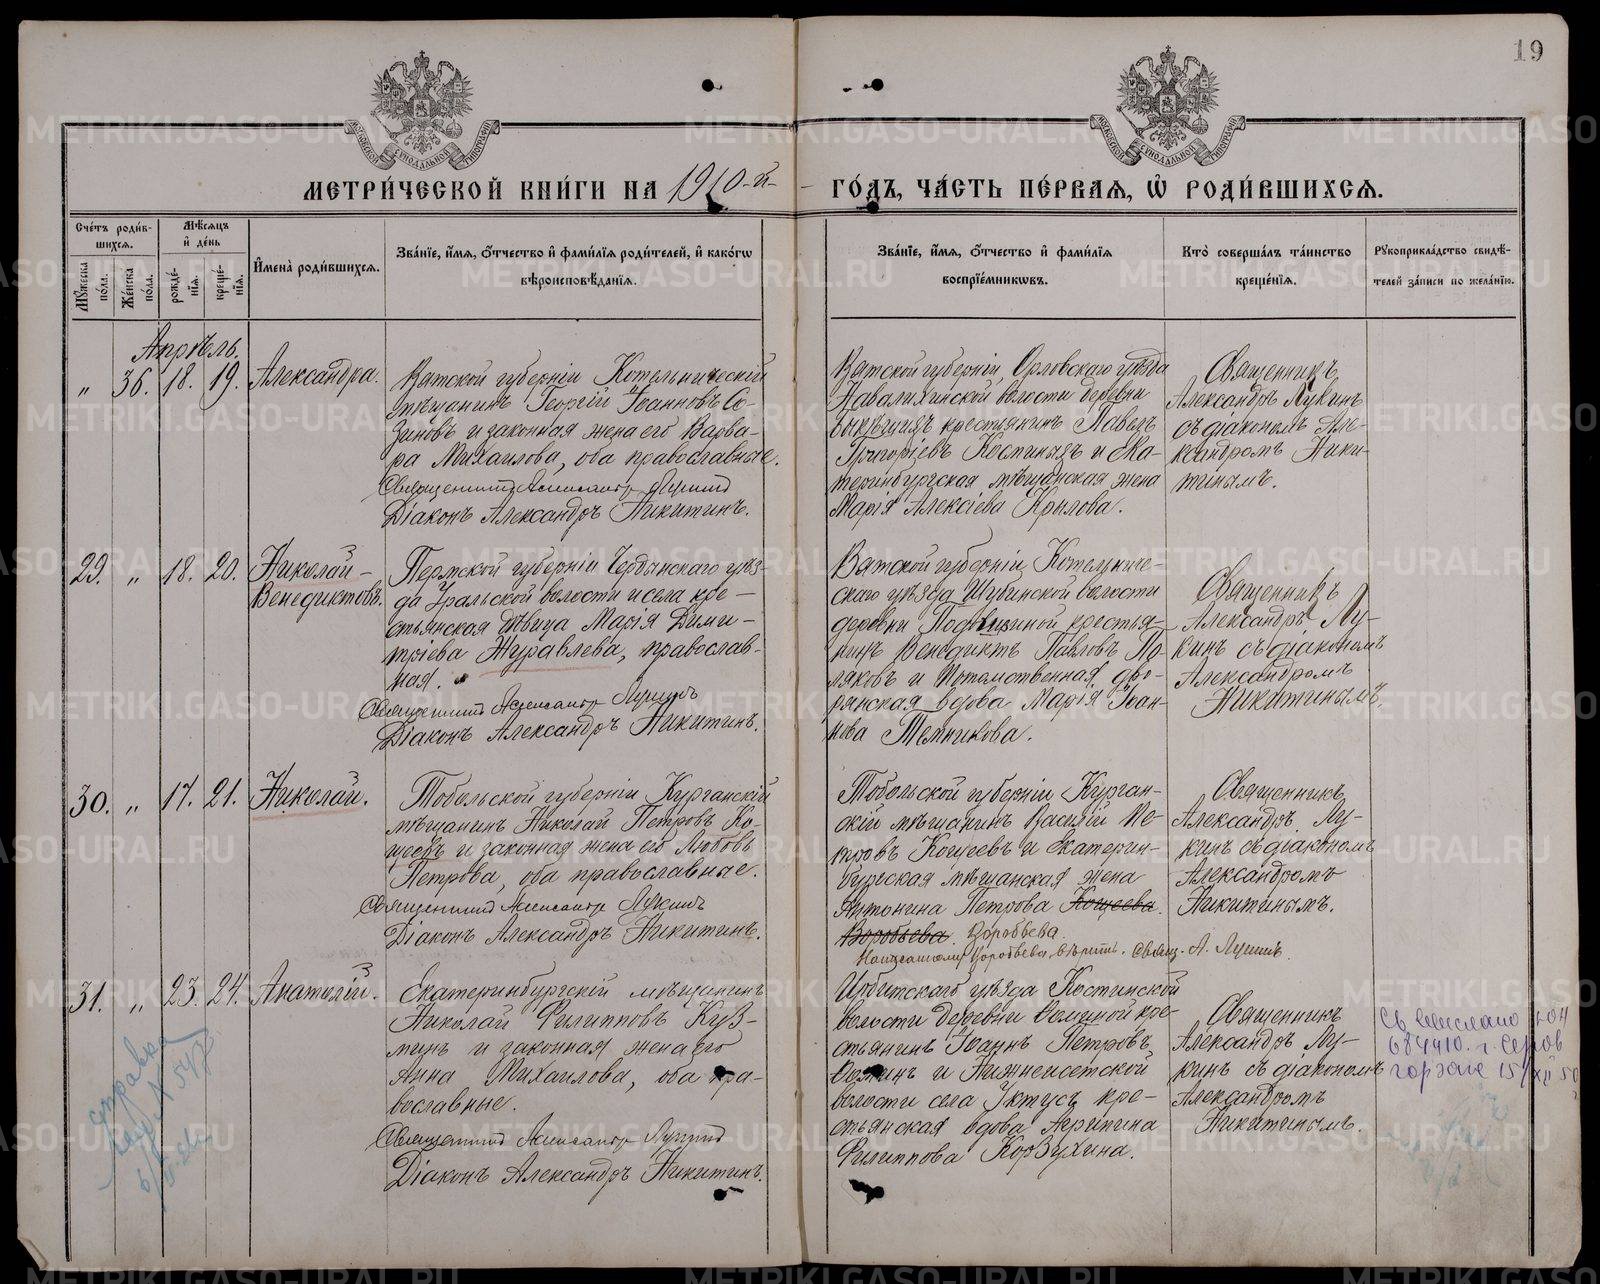 19
МЕТРИ́ЧЕСКОЙ КНИ́ГИ НА 1910-й ГО́ДЪ, ЧА́СТЬ ПЕ́РВАЯ, Ѡ҆ РОДИ́ВШИХСЯ.
Сче́тъ роди́в-
шихся.
Мꙋ́жеска по́ла.
Же́нска по́ла.
Мѣ́сяцъ
и҆ де́нь
рожде́-
нїя.
креще́-
нїя.
И҆мена̀ роди́вшихся.
Зва́нїе, и҆́мя, ѻ҆́тчество и҆ фами́лїя роди́телей, и҆ како́гѡ
вѣроисповѣ́данїя.
Зва́нїе, и҆́мя, ѻ҆́тчество и҆ фами́лїя
воспрїе́мникѡвъ.
Кто̀ соверша́лъ та́инство
креще́нїя.
Рꙋкоприкла́дство свидѣ́-
телей за́писи по жела́нїю.
Апрѣль.
„ 36. 18. 19. Александра.
Вятской губерніи Котельническій
мѣщанинъ Георгій Іоанновъ Со-
зиновъ и законная жена его Варва-
ра Михаилова, оба православные.
Священникъ Александр Лукинъ
Діаконъ Александръ Никитинъ.
Вятской губерніи, Орловскаго уѣзда
Навалихинской волости деревни
крестьянинъ Павелъ
Григоріевъ Костиныхъ и Ека-
теринбургская мѣщанская жена
Марія Алексіева Крылова.
Священникъ
Александръ Лукинъ
съ діакономъ Але-
ксандромъ Ники-
тинымъ.
29. „ 18. 20. Николай –
Венедиктовъ.
Пермской губерніи Чердынскаго уѣз-
да Уральской волости и села кре-
стьянская дѣвица Марія Дими-
тріева Журавлева, православ-
ная.
Священникъ Александр Лукинъ
Діаконъ Александръ Никитинъ.
Вятской губерніи Котельниче-
скаго уѣзда Шубинской волости
деревни крестья-
нинъ Венедиктъ Павловъ По-
ляковъ и потомственная дво-
рянская вдова Марія Іоан-
нова Темникова.
Священникъ
Александръ Лу-
кинъ съ діакономъ
Александромъ
Никитинымъ.
30. „ 17. 21. Николай.
Тобольской губерніи Курганскій
мѣщанинъ Николай Петровъ Ко-
щеевъ и законная жена его Любовь
Петрова, оба православные.
Священникъ Александр Лукинъ
Діаконъ Александръ Никитинъ.
Тобольской губерніи Курган-
скій мѣщанинъ Василій Пе-
тровъ Кощеевъ и Екатерин-
бургская мѣщанская жена
Антонина Петрова Кощеева
Воробьева. Воробьева.
Написанному Воробьева вѣрить. Свящ. А. Лукинъ.
Священникъ
Александръ Лу-
кинъ съ діакономъ
Александромъ
Никитинымъ.
31. „ 23. 24. Анатолій.
Екатеринбургскій мѣщанинъ
Николай Филипповъ Куз-
минъ и законная жена его
Анна Михаилова, оба пра-
вославные.
Священникъ Александр Лукинъ
Діаконъ Александръ Никитинъ.
Ирбитскаго уѣзда Костинской
волости деревни кре-
стьянинъ Іоаннъ Петровъ
и Нижнеисетской
волости села Уктусъ кре-
стьянская вдова Агрипина
Филиппова Корзухина.
Священникъ
Александръ Лу-
кинъ съ діакономъ
Александромъ
Никитинымъ.
справка
METRIKI.GASO-URAL.RU